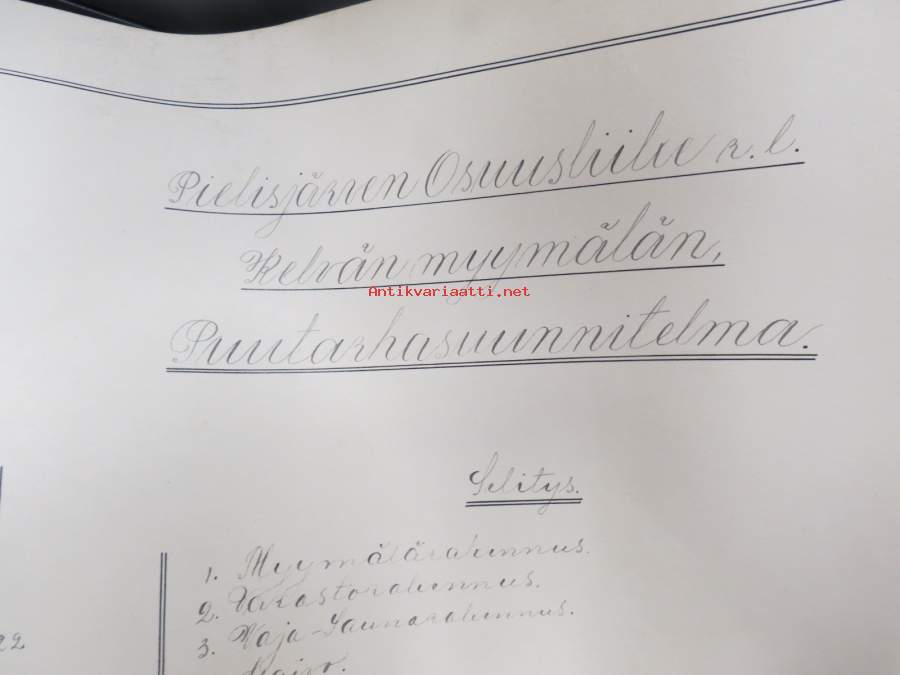 Pielisjärven Osuusliike r.l.
Kelvän myymälän,
Antikvariaatti.net
Puutarhasuunnitelma.
Selitys.
1. Myymälärakennus.
2. Varastorakennus.
3. Vaja-Saunarakennus.
Kaivo.
22